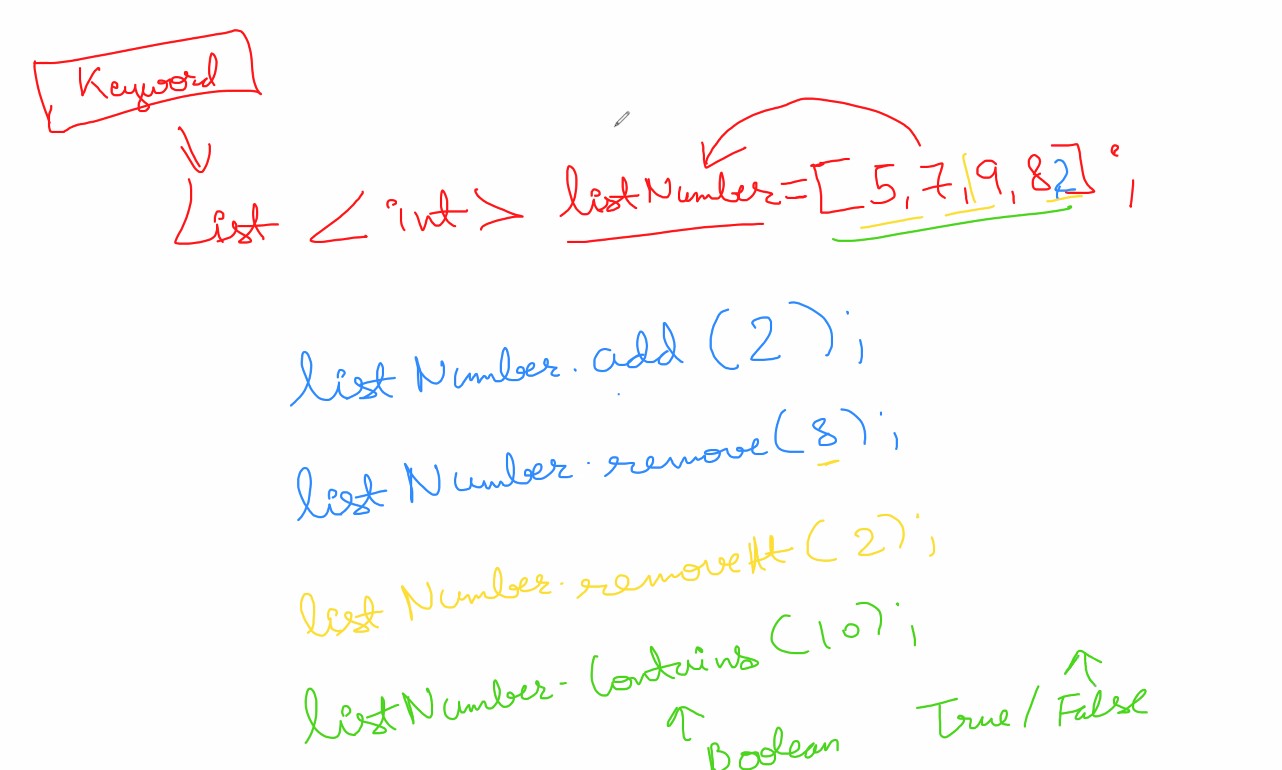 Keyword
List <int> listNumber=[5,7,9,82];
listNumber.add(2);
listNumber.remove(8);
listNumber.removeAt(2);
listNumber.Contains(10);
Boolean
True/False